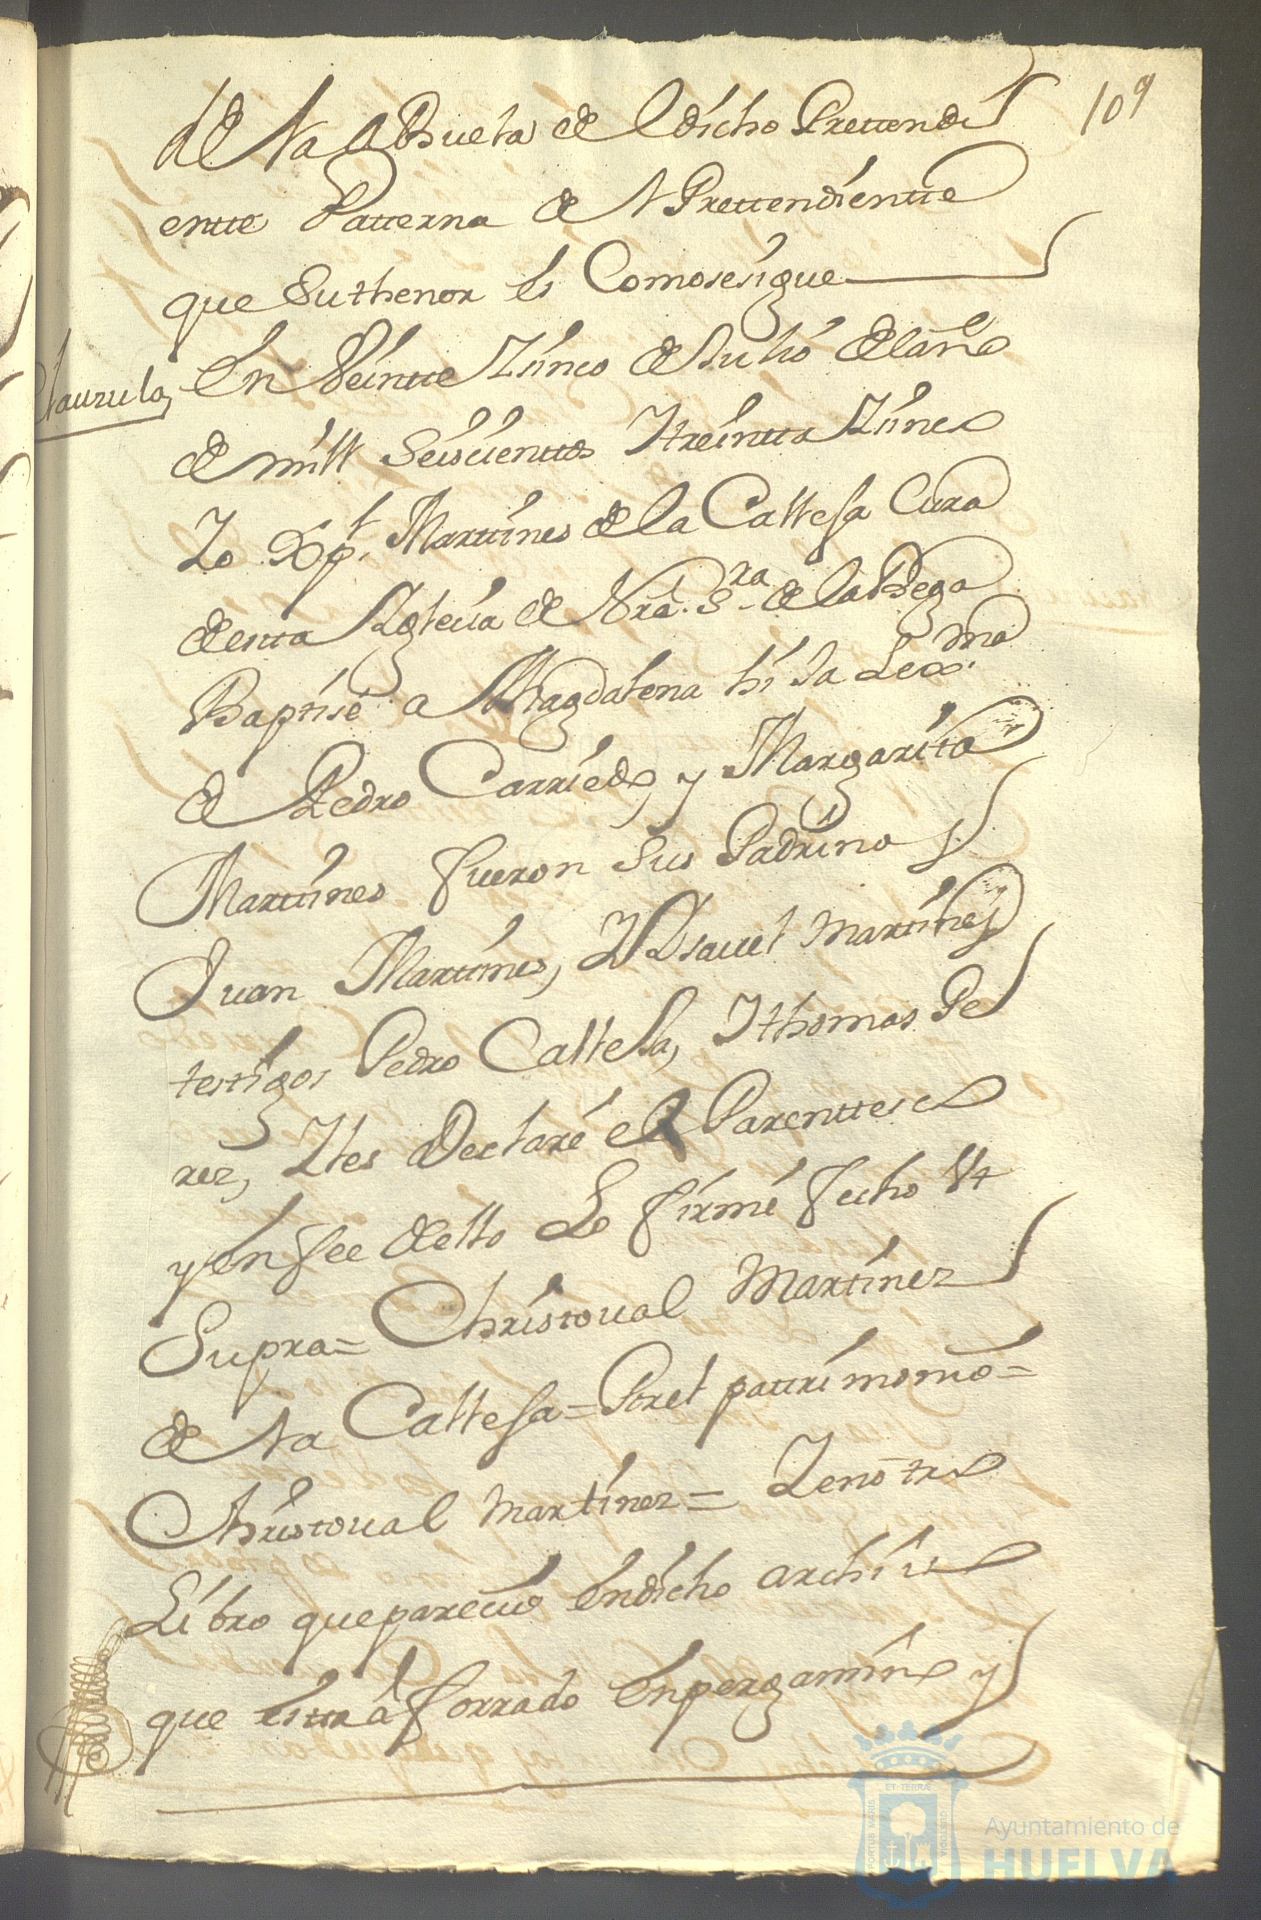 109
de la Abuela de el dicho Prettendi
entte Patterna de el Prettendientte
que su thenor es Como se sigue
Clausula
En Veintte Zinco de Julio del año
de mill Seiscienttos Y treintta Zinco
Yo Xpl. Marttines de la Callesa Cura
de esta Yglecia de Nra. Sra. de la Bega
Baptisé a Magdalena hija Lex.ma
de Pedro Carriedo, y Margarita
Marttines fueron sus Padrinos
Juan Marttines, Y Ysavel Martines
testigos Pedro Callesa, Y thomas Pe
rez, Y les Declaré el Parenttesco
y en fee de ello Lo firmé fecho Ut
Supra = Christoval Martinez
de la Callesa = Por el pattrimonio =
Christoval Martinez = Y en otro
Libro que parecio en dicho archivo
que esttá forrado en pergamino y
PORTUS MARIS ET TERRAE CUSTODIA
Ayuntamiento de
HUELVA